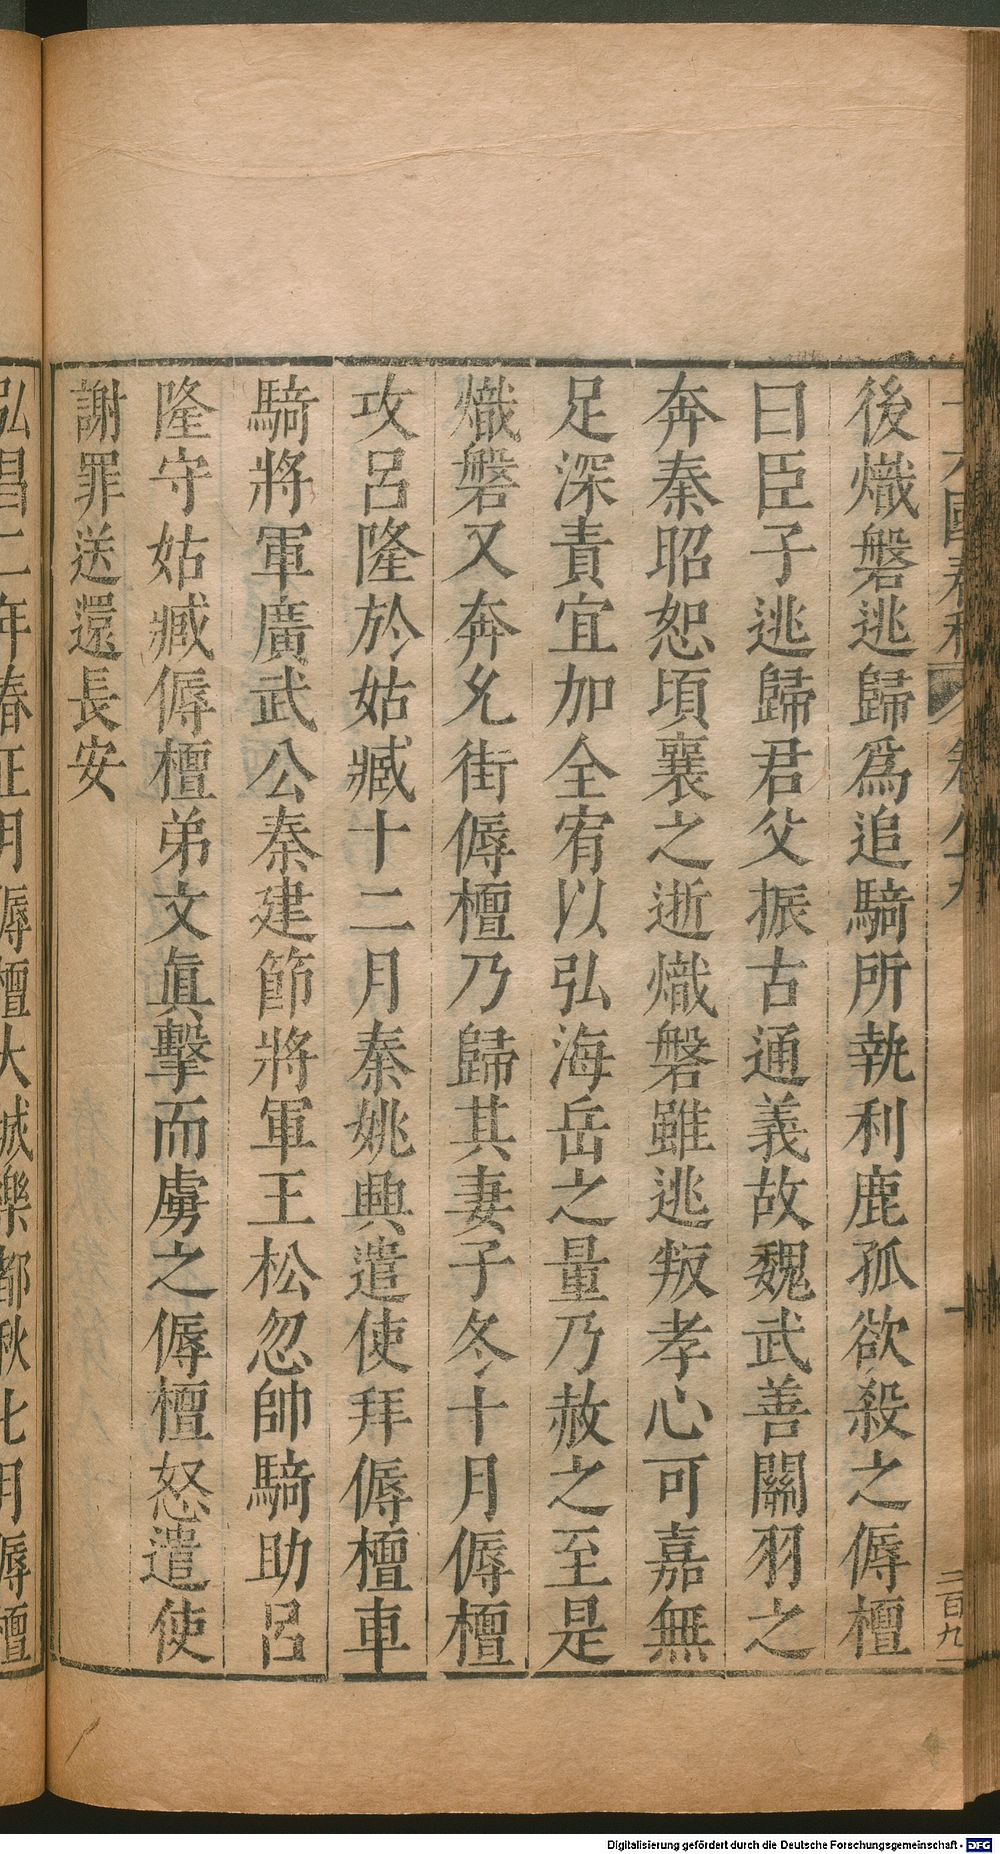 後熾磐逃歸爲追騎所執利鹿孤欲殺之傉檀
曰臣子逃歸君父振古通義故魏武善關羽之
奔秦昭恕頃襄之逝熾磐雖逃叛孝心可嘉無
足深責宜加全宥以弘海岳之量乃赦之至是
熾磐又奔允街傉檀乃歸其妻子冬十月傉檀
攻呂隆於姑臧十二月秦姚興遣使拜傉檀車
騎將軍廣武公秦建節將軍王松忽帥騎助呂
隆守姑臧傉檀弟文眞擊而虜之傉檀怒遣使
謝罪送還長安
弘昌二年春正月傉檀大城樂都秋七月傉檀
Digitalisierung gefördert durch die Deutsche Forschungsgemeinschaft - DFG